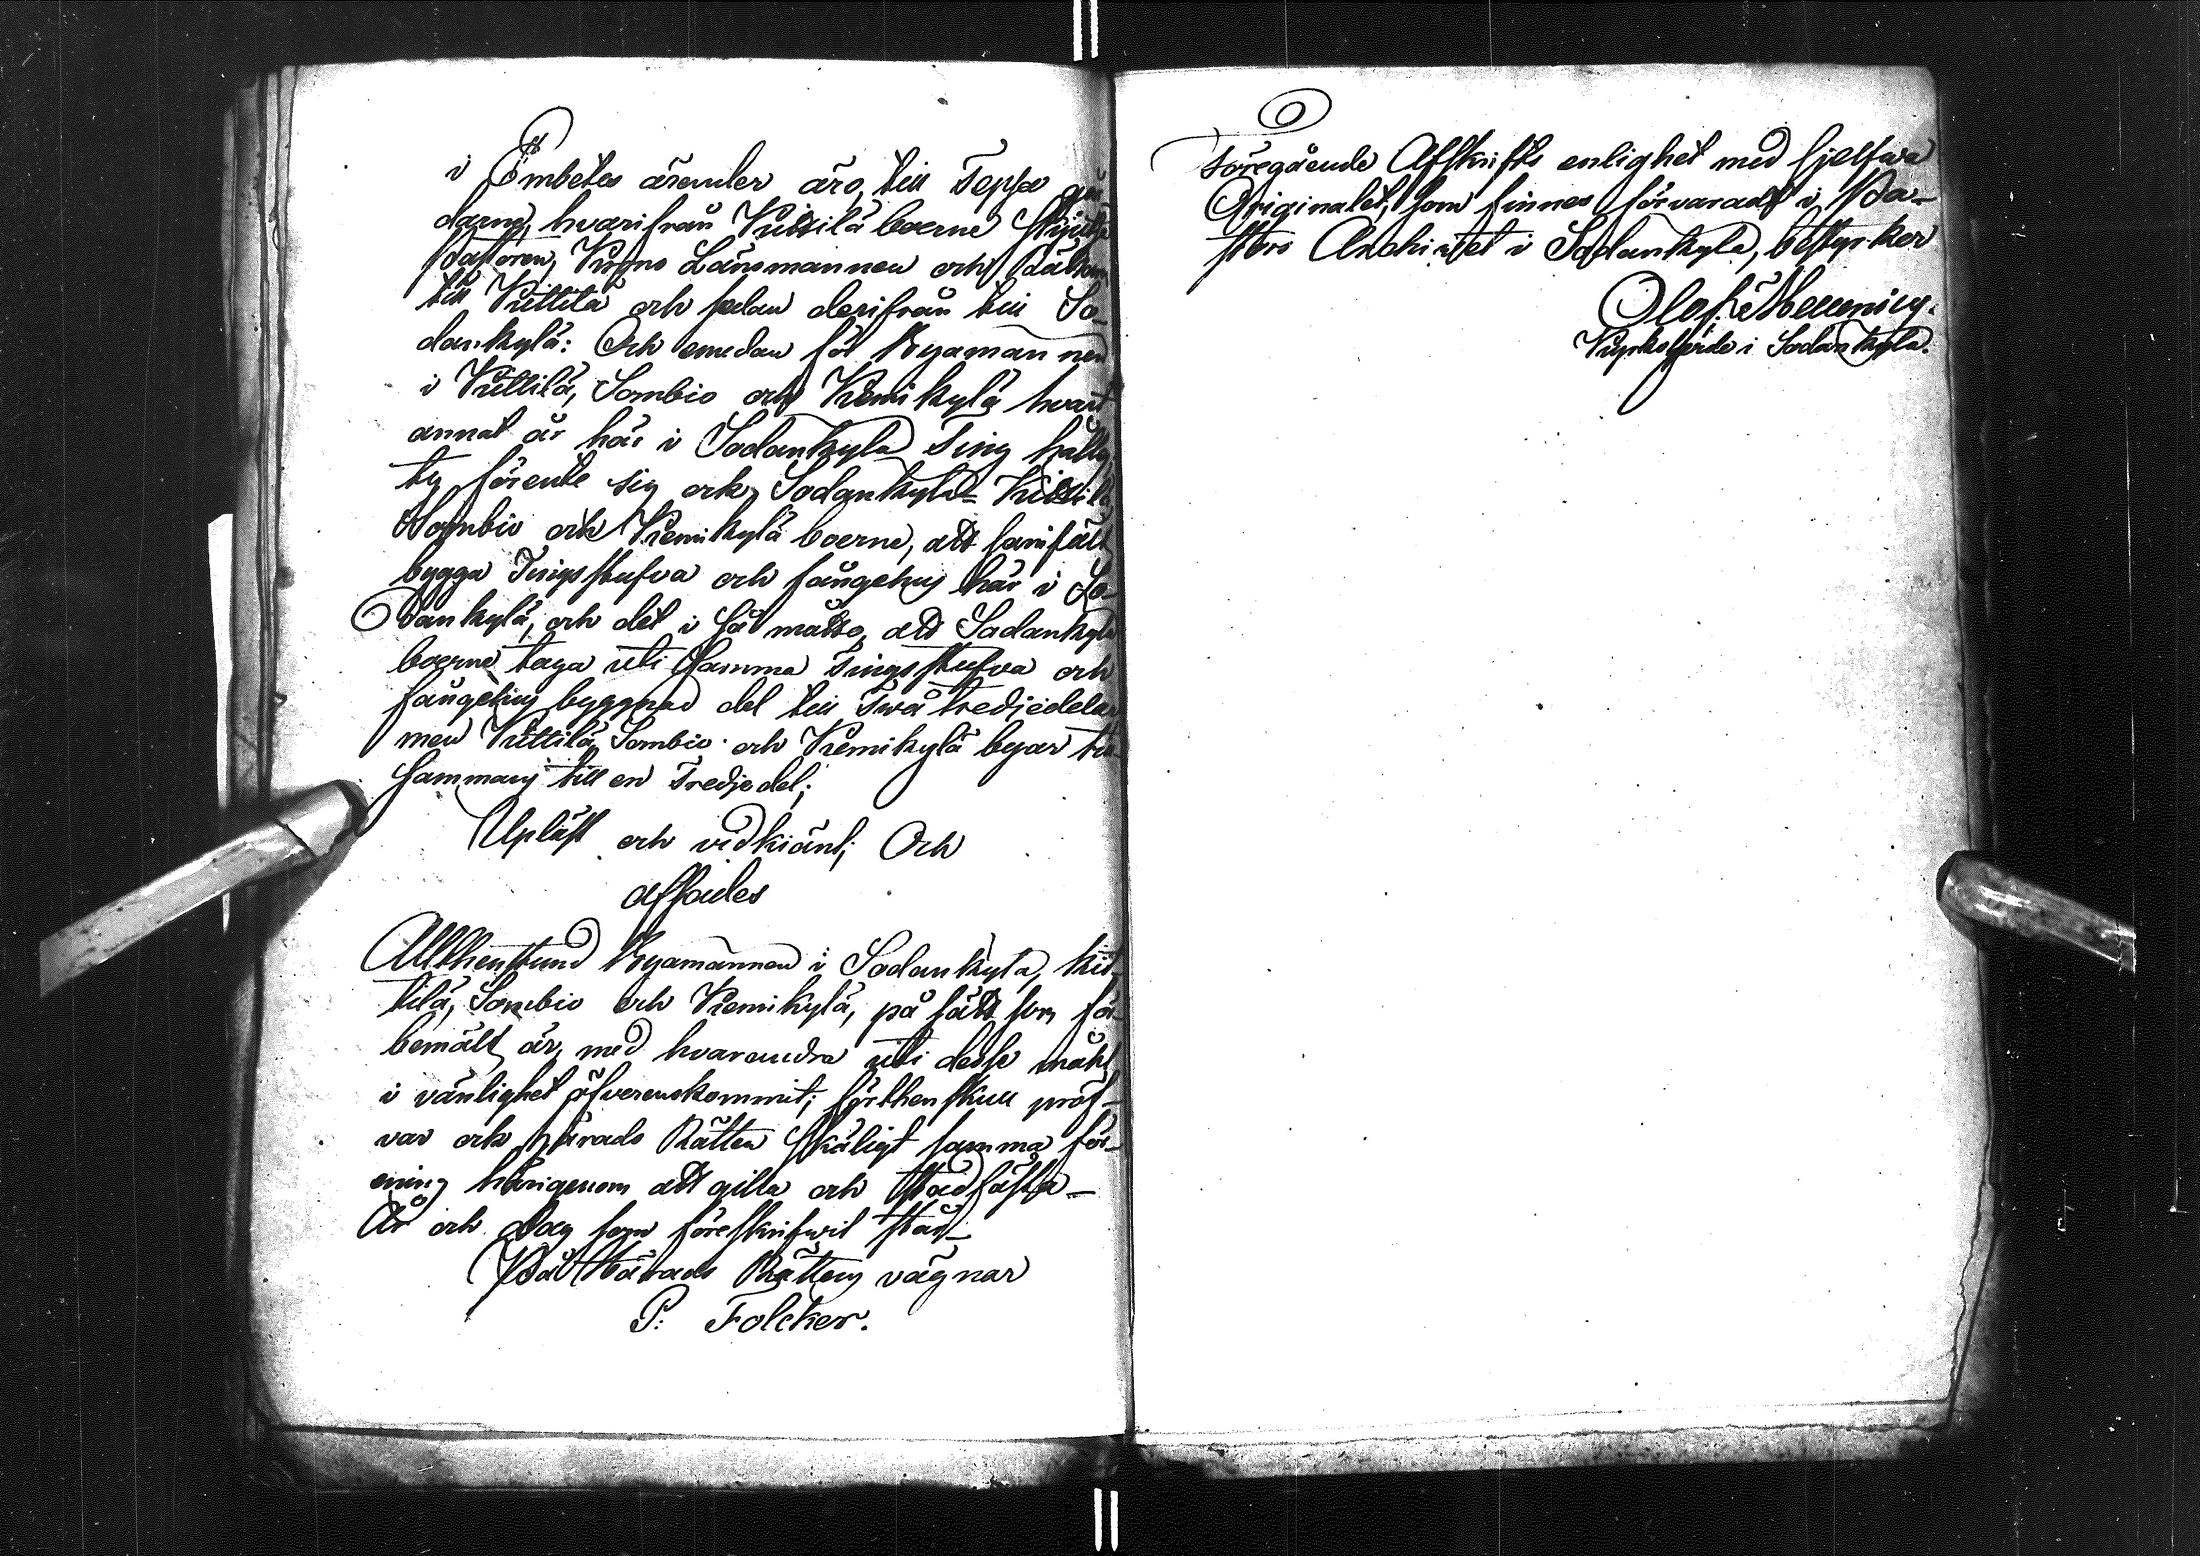 i Embetes ärender äro, till Teppa gå
darne, hvarifrån Kittilä boerne skjutsa
Pastoren, Krono Länsmannen och Rätten
till Kittilä och sedan derifrån till So-
dankylä: Och emedan för Byamännen
i Kittilä, Sombio och Kemikylä hvart
annat år här i Sodankylä Ting hålles
ty förente sig ock Sodankylä- Kittilä
Sombio och Kemikylä boerne, att samfält
bygga Tingsstufva och fångehus här i So-
dankylä, och det i så måtto, att Sodankylä
boerne taga uti samma Tingsstufva och
fångehus byggnad del till Två tredjedelar
men Kittilä, Sombio och Kemikylä byar til-
sammans till en Tredjedel;
Upläst och vidkiänt; Och
afsades
Allthenstund Byamännen i Sodankylä, Kit-
tilä, Sombio och Kemikylä, på sätt som för-
bemält är, med hvarandra uti desse mähl
i vänlighet öfverenskommit; förthenskull pröf-
var ock Härads Rätten skäligt samma för-
ening härigenom att gilla och stadfästa_
År och dag som föreskrifwit står_
På Härads Rättens vägnar
P: Folcker.
Föregående Afskrifts enlighet med sjelfwa
Originalet, som finnes förvaradt i Pa-
stors Archivet i Sodankylä, bestyrker
Olof Mellenius.
Kyrkoherde i Sodankylä.